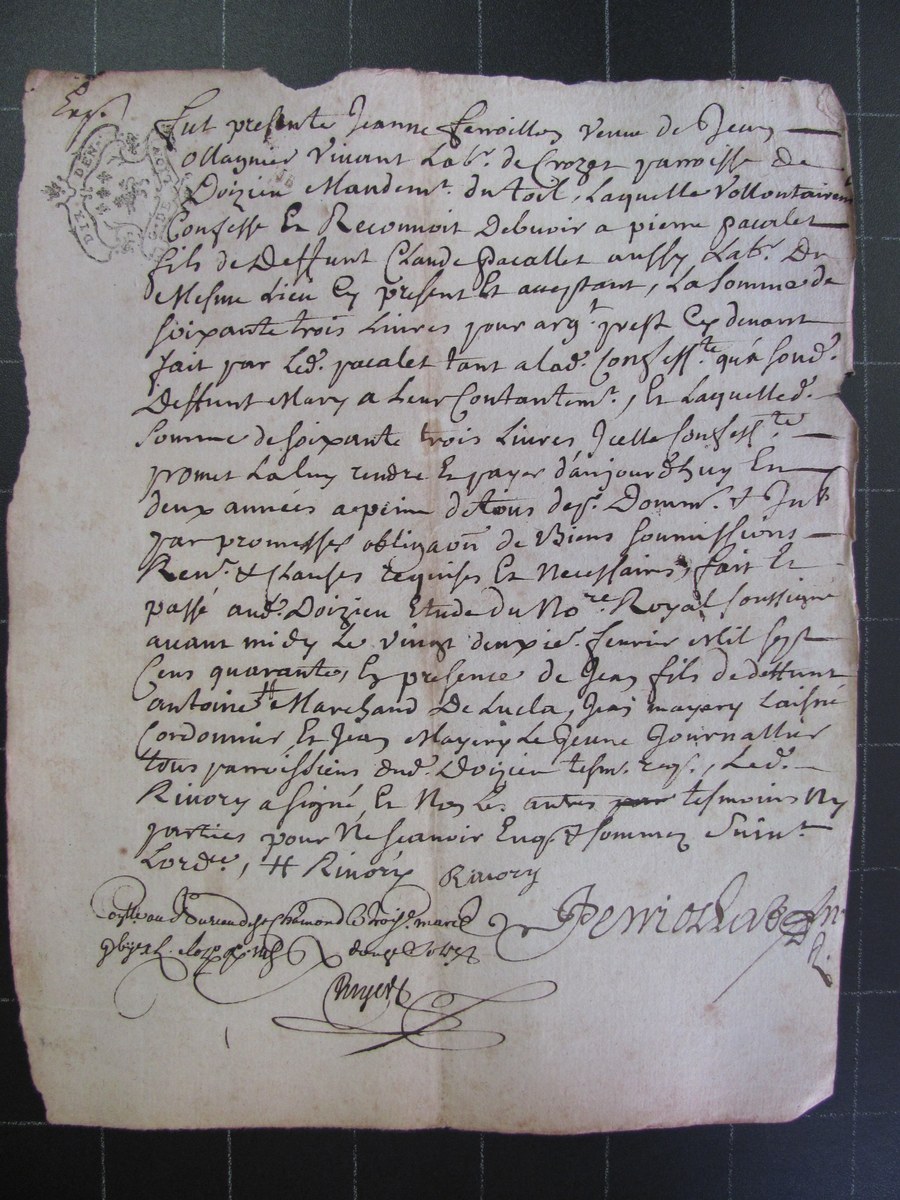 Exp.
DIX DEN.
Fut presente Jeanne ferroillon veuve de Jean
ollagnier vivant Labr. de Crozet parroisse de
Doizieu Mandemt. du toil, Laquelle Vollontairemt
Confesse Et Reconnoit Debvoir a pierre pacalet
fils de Deffunt Claude pacallet aussy Labr. Du
Mesme Lieu Cy present Et acceptant, La Somme de
soixante trois Livres pour argt. prest Cy devant
fait par Led. pacalet tant a lad. Confesste. qu'a sond.
Deffunt Mary a Leur Contantemt., Et Laquelled.
Somme de soixante trois Livres Jcelle Confesste.
promet La luy rendre Et payer d'aujourd'huy En
deux années a peine de tous desp. Domm. & Intts
par promesses obligaon de Biens soumissions
Renon. & clauses requises Et Necessaires, fait Et
passé aud. Doizieu Etude du Nore. Royal soussigné
avant midy Le vingt deuxie. fevrier Mil sept
Cens quarante, En presence de Jean fils de deffunt
antoine # Marchand De Lucla, Jean mayery Laisné
Cordonnier Et Jean Mayery Le Jeune Journallier
tous parroissiens dud. Doizieu tesm. req., Led.
Rivory a signé, Et Non Les autres tesmoins Ny
parties pour Ne scavoir Enq. & sommez Suivt.
Lordce., # Rivory Rivory
au Bureau de st Chamond Le trois. mars